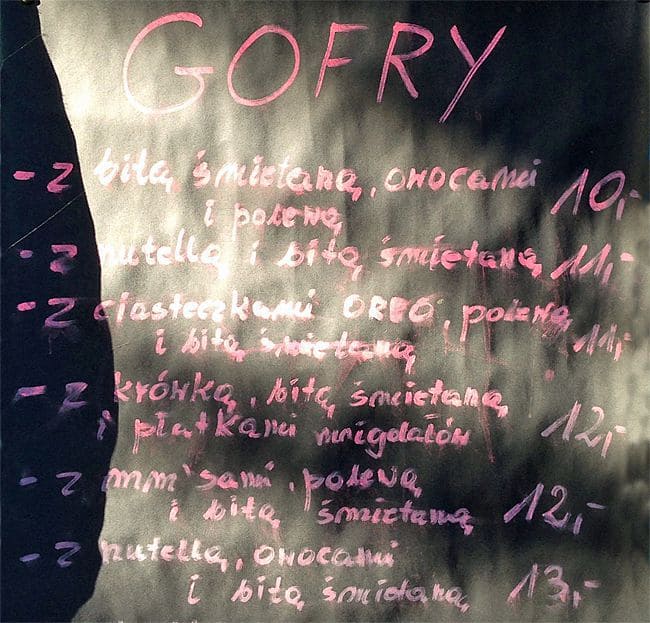 GOFRY
- z bitą śmietaną, owocami
i polewą 10,-
- z nutellą i bitą śmietaną 11,-
- z ciasteczkami OREO, polewą
i bitą śmietaną 11,-
- z krówką, bitą śmietaną
i płatkami migdałów 12,-
- z mm'sami, polewą
i bitą śmietaną 12,-
- z nutellą, owocami
i bitą śmietaną 13,-